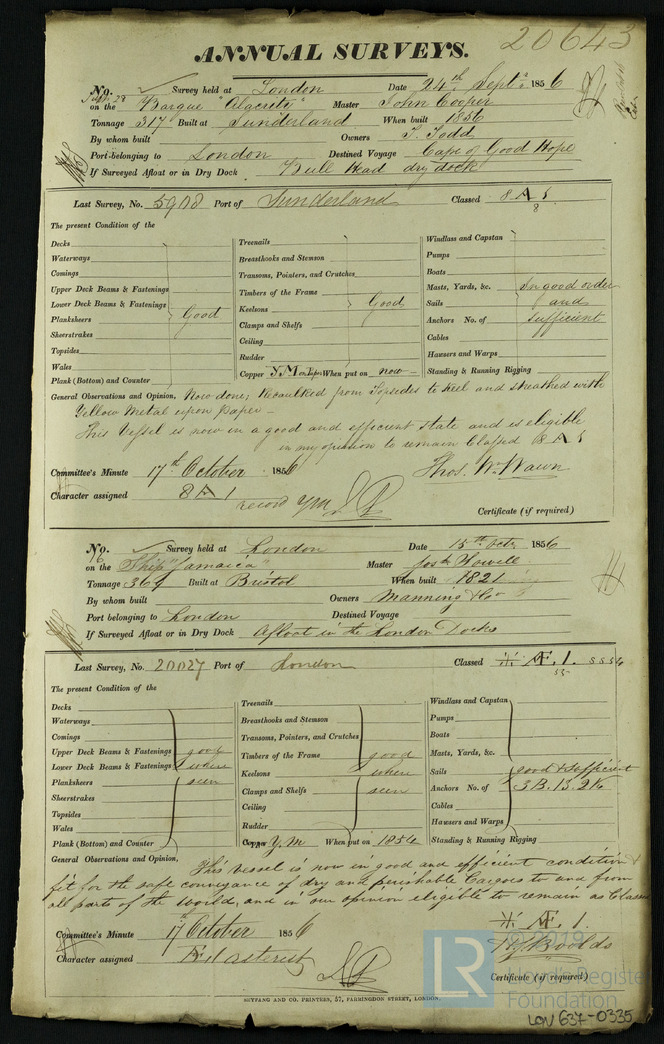 20643
ANNUAL SURVEYS.
No. Survey held at London Date 24th Septr 1856
on the Barque "Alacrity" Master John Cooper
Tonnage 317 Built at Sunderland When built 1856
By whom built Owners T. Todd
Port belonging to London Destined Voyage Cape of Good Hope
If Surveyed Afloat or in Dry Dock Bull Head dry dock
Last Survey, No. 5908 Port of Sunderland Classed 8 A 1
8
The present Condition of the
Decks
Waterways
Comings
Upper Deck Beams & Fastenings
Lower Deck Beams & Fastenings
Planksheers Good
Sheerstrakes
Topsides
Wales
Plank (Bottom) and Counter
Treenails
Breasthooks and Stemson
Transoms, Pointers, and Crutches
Timbers of the Frame
Keelsons Good
Clamps and Shelfs
Ceiling
Rudder
Copper Y.M. on Paper When put on now
Windlass and Capstan
Pumps
Boats
Masts, Yards, &c. In good order
Sails and
Anchors No. of sufficient
Cables
Hawsers and Warps
Standing & Running Rigging
General Observations and Opinion, Now done; Recaulked from Topsides to Keel and sheathed with
Yellow Metal upon paper -
This Vessel is now in a good and efficient state and is eligible
in my opinion to remain Classed 8 A 1
Committee's Minute 17th October 1856 Thos. Wm. Wawn
Character assigned 8 A 1
record YM
Certificate (if required)
No. Survey held at London Date 15th Octr 1856
on the Ship "Jamaica" Master Josh Powell
Tonnage 364 Built at Bristol When built 1821
By whom built Owners Manning & Co
Port belonging to London Destined Voyage
If Surveyed Afloat or in Dry Dock Afloat in the London Docks
Last Survey, No. 20027 Port of London Classed Æ. 1.
The present Condition of the
Decks
Waterways
Comings
Upper Deck Beams & Fastenings good
Lower Deck Beams & Fastenings where
Planksheers seen
Sheerstrakes
Topsides
Wales
Plank (Bottom) and Counter
Treenails
Breasthooks and Stemson
Transoms, Pointers, and Crutches
Timbers of the Frame good
Keelsons where
Clamps and Shelfs seen
Ceiling
Rudder
Copper Y.M When put on 1854
Windlass and Capstan
Pumps
Boats
Masts, Yards, &c.
Sails good & Sufficient
Anchors No. of 3 B. 1 S. 2 K
Cables
Hawsers and Warps
Standing & Running Rigging
General Observations and Opinion, This vessel is now in good and efficient condition &
fit for the safe conveyance of dry and perishable Cargoes to and from
all parts of the World, and in our opinion eligible to remain as Classed
Æ. 1.
Committee's Minute 17 October 1856
Character assigned Æ 1 asterisk
Certificate (if required)
SEYFANG AND CO. PRINTERS, 57, FARRINGDON STREET, LONDON.
LR
©2019
Lloyd's Register
Foundation
LON 637-0335